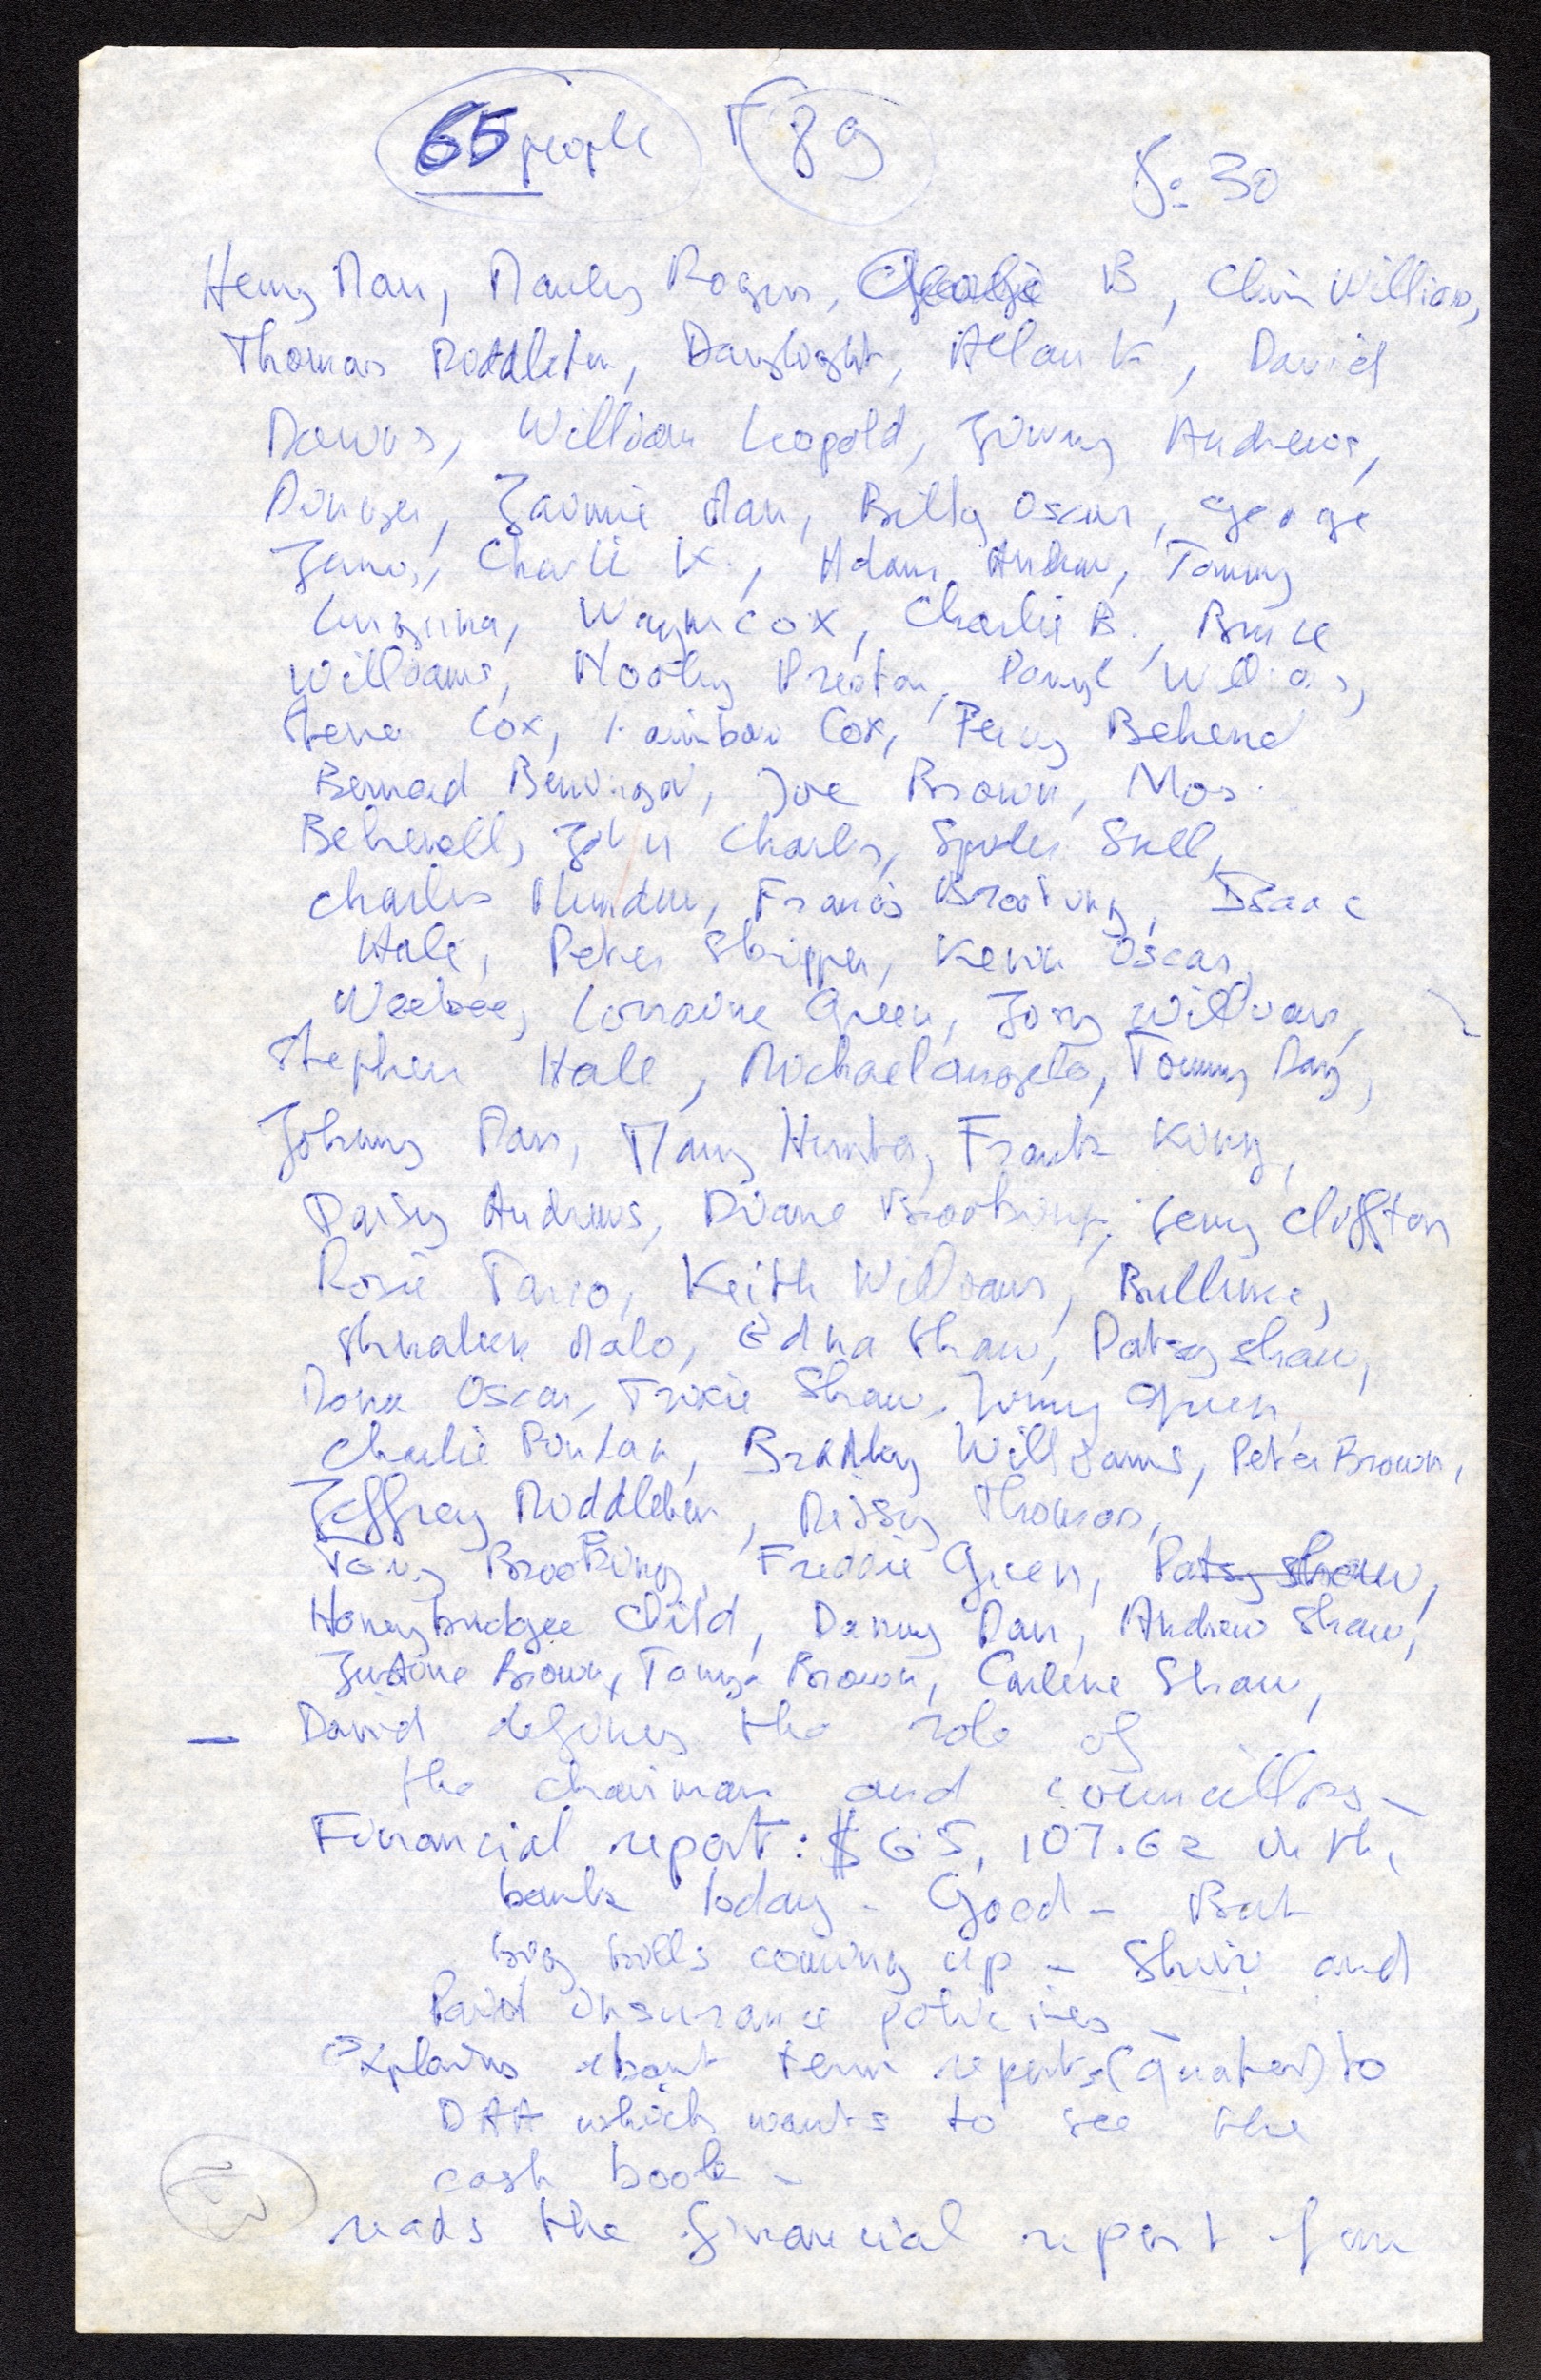 65 people 89
8:30
Henry Man, Rogers, B, Clive Williams,
Thomas Middleton, Daylight, Allan K, David
Downs, William Leopold, Jimmy Andrews,
Jaimie Man, Billy Oscar, George
Charlie K., Adam Andrew, Tommy
Wayne Cox, Charlie B., Bruce
Williams, Hooky Preston, Darryl Williams,
Cox, Rainbow Cox, Percy Beherel
Bernard, Joe Brown, Mos
Beherell, John Charles, Spider Snell,
Charles, Francis Brooking, Isaac
Hale, Peter Skipper, Kevin Oscar,
Weebee, Lorraine Green, Josy Williams,
Stephen Hale, Michaelangelo, Tommy May,
Johnny Man, Many Hunter, Frank King,
Daisy Andrews, Diane Brooking, Jenny Cliffton
Rosie, Keith Williams,
Malo, Edna Shaw, Patsy Shaw,
Dona Oscar, Trixie Shaw, Jimmy Green,
Charlie, Bradley Williams, Peter Brown,
Jeffrey Middleton, Missy Thomas,
Tony Brooking, Freddie Green, Patsy Shaw,
Child, Danny Dan, Andrew Shaw,
Justine Brown, Tanya Brown, Carlene Shaw,
— David defines the role of
the chairman and councillors –
Financial report: $65,107.62 in the
bank today – Good – But
big bills coming up – Shire and
Paid insurance policies –
explains about term reports (quater) to
DAA which wants to see the
cash book –
reads the financial report from